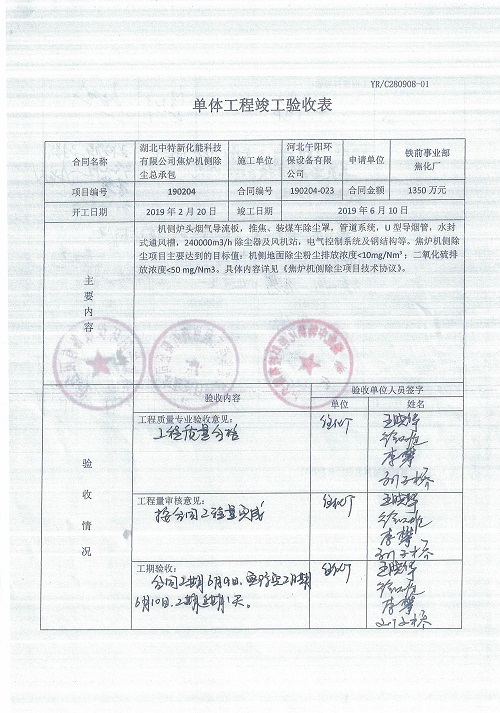 YR/C280908-01
单体工程竣工验收表
合同名称 湖北中特新化能科技有限公司焦炉机侧除尘总承包 施工单位 河北午阳环保设备有限公司 申请单位 铁前事业部焦化厂
项目编号 190204 合同编号 190204-023 合同金额 1350 万元
开工日期 2019 年 2 月 20 日 竣工日期 2019 年 6 月 10 日
主要内容
机侧炉头烟气导流板，推焦、装煤车除尘罩，管道系统，U 型导烟管，水封
式通风槽，240000m3/h 除尘器及风机站，电气控制系统及钢结构等。焦炉机侧除
尘项目主要达到的目标值：机侧地面除尘粉尘排放浓度<10mg/Nm³；二氧化硫排
放浓度<50 mg/Nm3。具体内容详见《焦炉机侧除尘项目技术协议》。
验收情况
验收内容 验收单位人员签字
单位 姓名
工程质量专业验收意见：
工程质量合格
王晓华
李攀
工程量审核意见：
按合同工程量完成
王晓华
李攀
工期验收：
合同工期6月9日，
6月10日，工期延期1天。
王晓华
李攀